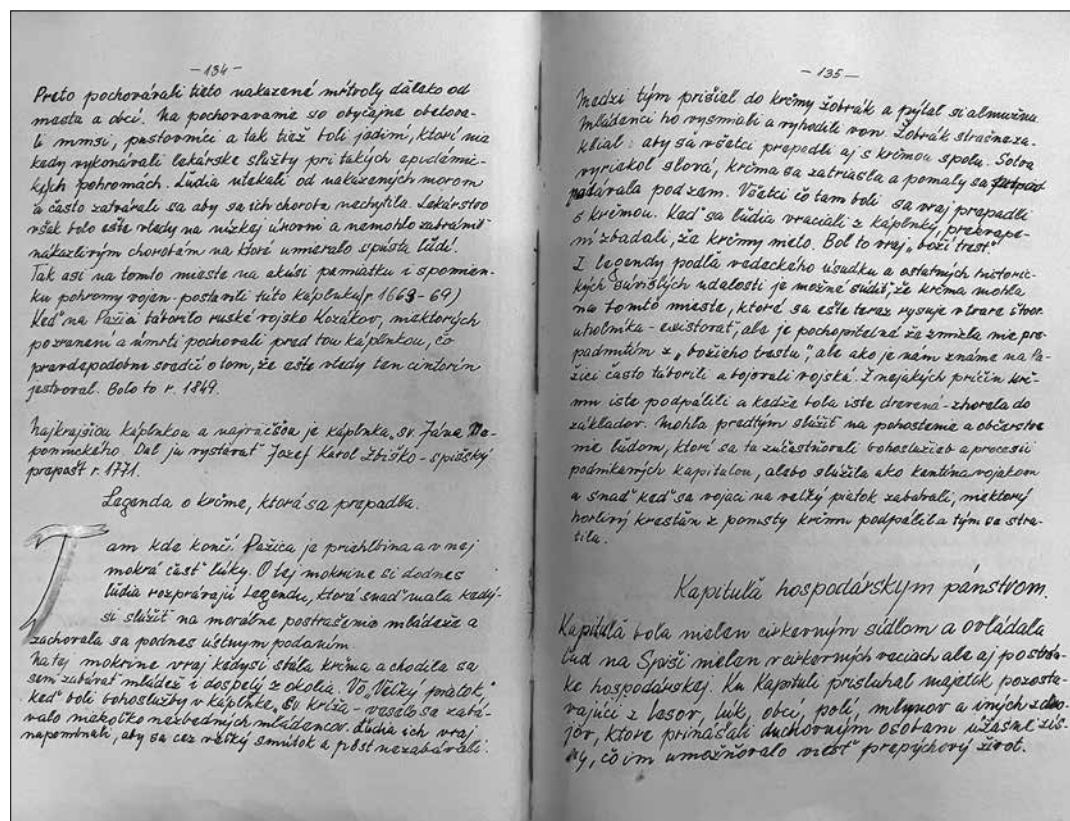 -134-
Preto pochovávali tieto nakazené mŕtvoly ďaleko od
mesta a obcí. Na pochovávanie so obyčajne obetova-
li mnísi, pustovníci a tak tiež boli jediní, ktorí nie
kedy vykonávali lekárske služby pri takých epidémic-
kých pohromách. Ľudia utekali od nakazených morom
a často zatvárali sa aby sa ich choroba nechytila. Lekárstvo
však bolo ešte vtedy na nízkej úrovni a nemohlo zabrániť
nákazlivým chorobám na ktoré umieralo spústa ľudí.
Tak asi na tomto mieste na akúsi pamiatku i spomien-
ku pohromy vojen-postavili túto káplnku (r. 1663-69)
Keď na Pažici táborilo ruské vojsko Kozákov, niektorých
pozranení a úmrtí pochovali pred tou káplnkou, čo
pravdepodobne svedčí o tom, že ešte vtedy ten cintorín
jestvoval. Bolo to r. 1849.
Najkrajšiou káplnkou a najväčšou je káplnka „sv. Jána Ne-
pomuckého. Dal ju vystavať Jozef Karol Zbiško-spišský
prepošt r. 1771.
Legenda o krčme, ktorá sa prepadla.
Tam kde končí Pažica je priehlbina a v nej
mokrá časť lúky. O tej mokrine si dodnes
ľúdia rozprávajú Legendu, ktorá snaď mala kedy-
si slúžiť na morálne postrašenie mládeže a
zachovala sa podnes ústnym podaním.
Na tej mokrine vraj kedysi stála krčma a chodila sa
sem zabávať mládež i dospelý z okolia. Vo „Veľký piatok,“
keď boli bohoslužby v káplnke „sv Kríža- veselo sa zabá-
valo niekoľko nezbedných mládencov. Ľúdia ich vraj
napomínali, aby sa cez veľký smútok a pôst nezabávali.
-135-
Medzi tým prišiel do krčmy žobrák a pýtal si almužnu
Mládenci ho vysmiali a vyhodili von Žobrák strašne za-
klial: aby sa všetci prepadli aj s krčmou spolu. Sotva
vyriekol slová, krčma sa zatriasla a pomaly sa
padávala pod zem. Všetci čo tam boli sa vraj prepadli
s krčmou. Keď sa ľúdia vraciali z káplnky, prekvape-
ní zbadali, že krčmy nieto. Bol to vraj „boží trest“.
Z legendy podľa vedeckého úsudku a ostatných historic-
kých súvislých udalosti je možné súdiť, že krčma mohla
na tomto mieste, ktoré sa ešte teraz rysuje v tvare štvor
uholníka-existovať, ale je pochopiteľné že zmizla nie pre-
padnutím z „božieho trestu“, ale ako je nam známe na Pa-
žici často táborili a bojovali vojská. Z nejakých príčin krč-
mu iste podpálili a kedže bola iste drevená-zhorela do
základov. Mohla predtým slúžiť na pohostenie a občerstve
nie ľúdom, ktorí sa tu zúčastňovali bohoslužieb a procesií
podnikaných kapitulou, alebo slúžila ako kantína vojakom
a snaď keď sa vojaci na veľký piatok zabávali, niektorý
horlivý kresťan z pomsty krčmu podpálil a tým sa stra-
tila.
Kapitulá hospodárskym pánstvom.
Kapitulá bola nielen cirkevným sídlom a ovládala
ľud na Spiši nielen v cirkevných veciach ale aj po strán-
ke hospodárskej. Ku Kapituli prislúhal majetik pozostá-
vajúci z lesov, lúk, obcí, polí, mlynov a iných zdro-
jov, ktoré prinášali duchovným osobam úžasné zis-
ky, čo im umožňovalo viesť prepychový život.